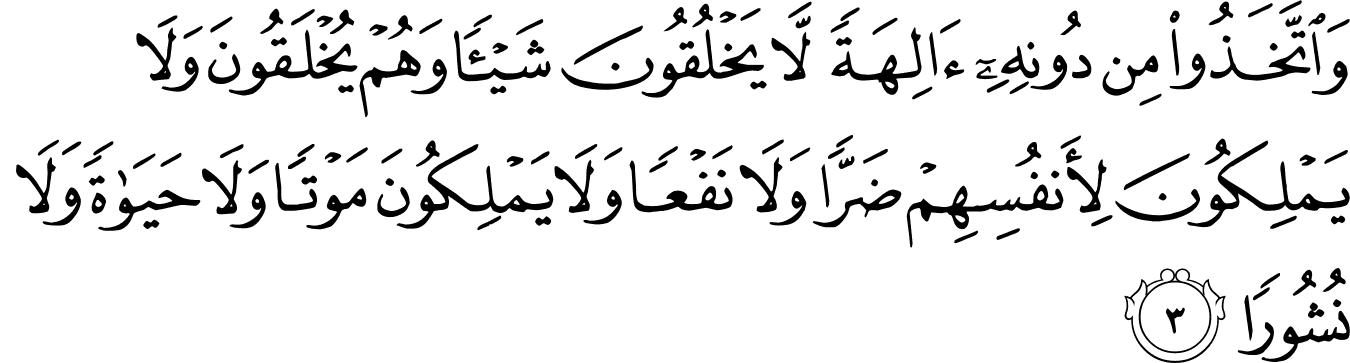 وَٱتَّخَذُوا۟ مِن دُونِهِۦٓ ءَالِهَةً لَّا يَخْلُقُونَ شَيْـًٔا وَهُمْ يُخْلَقُونَ وَلَا
يَمْلِكُونَ لِأَنفُسِهِمْ ضَرًّا وَلَا نَفْعًا وَلَا يَمْلِكُونَ مَوْتًا وَلَا حَيَوٰةً وَلَا
نُشُورًا ٣